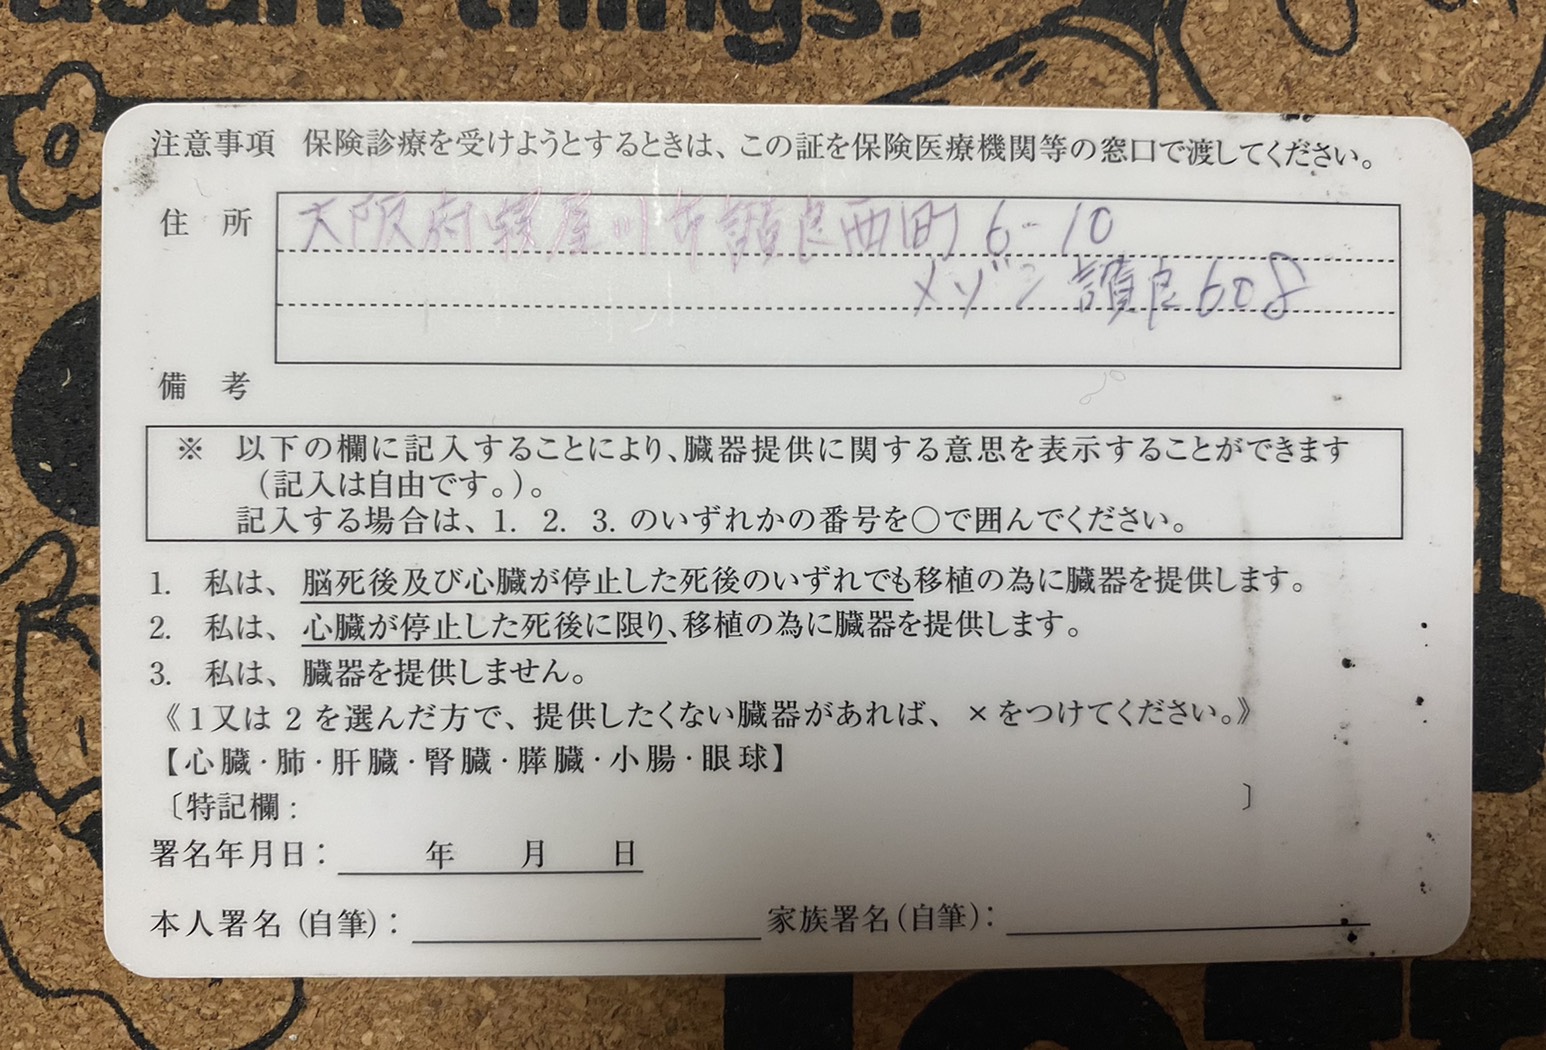 asant things.
注意事項 保険診療を受けようとするときは、この証を保険医療機関等の窓口で渡してください。
住所 大阪府寝屋川市讃良西町6-10
メゾン讃良608
備考
※ 以下の欄に記入することにより、臓器提供に関する意思を表示することができます
（記入は自由です。）。
記入する場合は、1. 2. 3. のいずれかの番号を○で囲んでください。
1. 私は、脳死後及び心臓が停止した死後のいずれでも移植の為に臓器を提供します。
2. 私は、心臓が停止した死後に限り、移植の為に臓器を提供します。
3. 私は、臓器を提供しません。
《1又は2を選んだ方で、提供したくない臓器があれば、×をつけてください。》
【心臓・肺・肝臓・腎臓・膵臓・小腸・眼球】
〔特記欄： 〕
署名年月日： 年 月 日
本人署名（自筆）： 家族署名（自筆）：